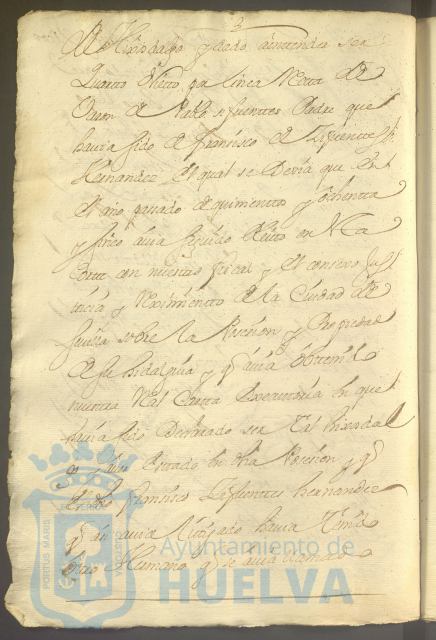 de Hixodalgo y dado a entender ser
quarto Nieto por linea Recta de
Varon de Pablo sifuentes Padre que
havia sido de Francisco de Zifuentes
Hernandez el qual se Devia que en
el año passado de quinientos y ochenta
y sinco avia seguido Pleito en Nra
Corte con nuestro fiscal y el consexo Jus
ticia y Reximiento de la Ciudad de
sevilla sobre la Posesion y Propiedad
de su hidalguia y q avia obtenido
nuestra Real Carta Executoria en que
havia sido Declarado ser tal hixodal
go y avia estado en dha Posesion y q
el dho Francisco Zifuentes hernandez
q an avia litigado havia tenido
otro Hermano q se avia
PORTUS MARIS
Ayuntamiento de
HUELVA